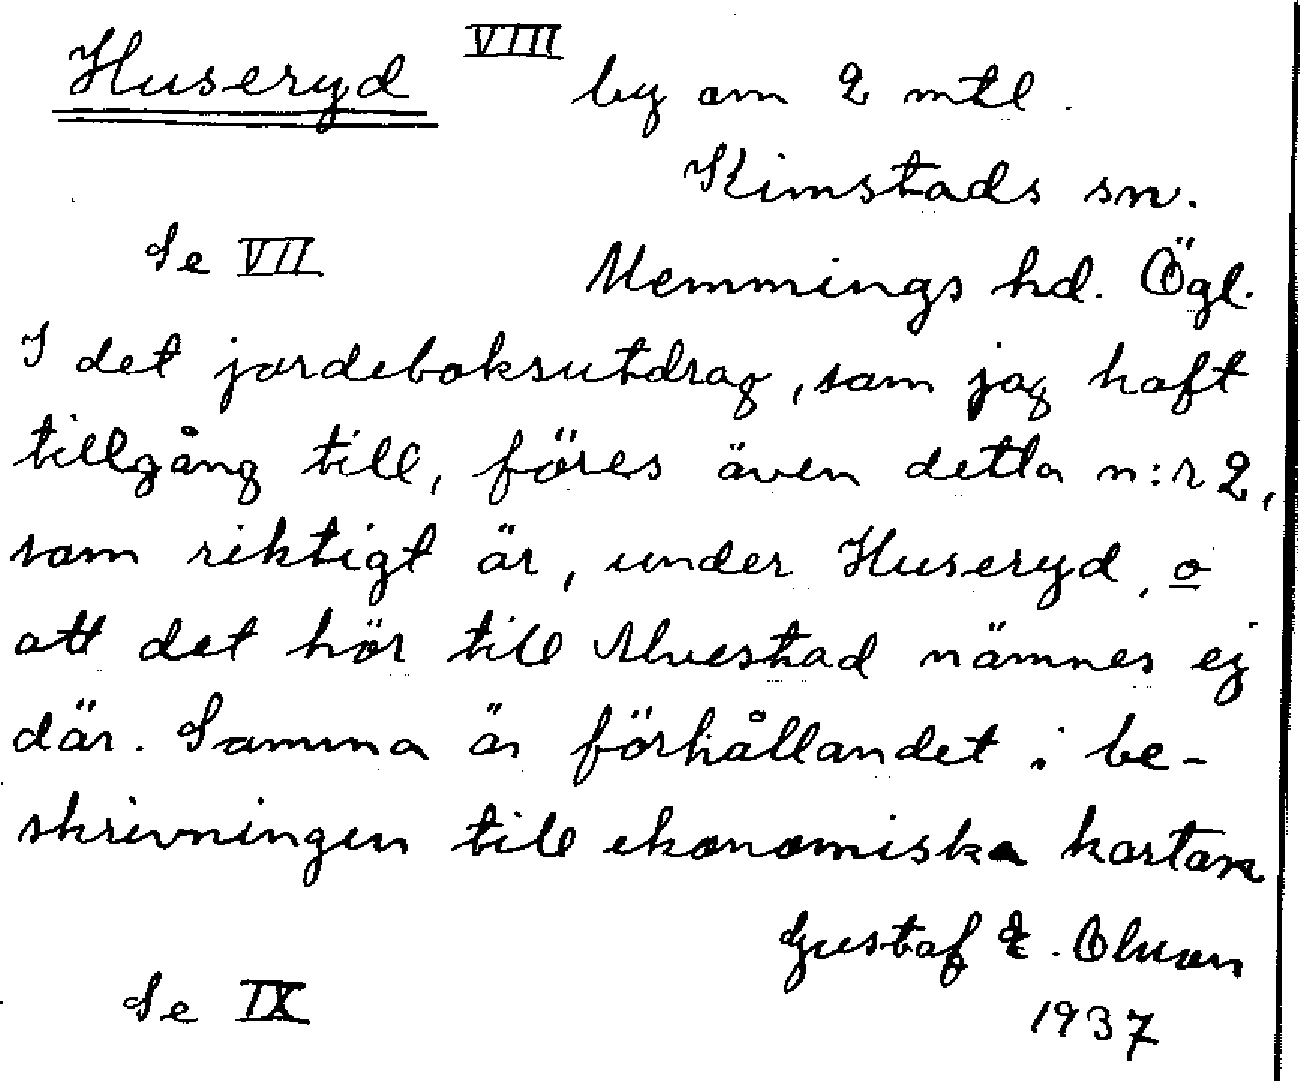 Huseryd VIII by om 2 mtl.
Kimstads sn.
Se VII Memmings hd. Ögl.
I det jordeboksutdrag, som jag haft
tillgång till, föres även detta n:r 2,
som riktigt är, under Huseryd, o
att det hör till Alvestad nämnes ej
där. Samma är förhållandet i be-
skrivningen till ekonomiska kartan
Gustaf E. Olsson
Se IX 1937